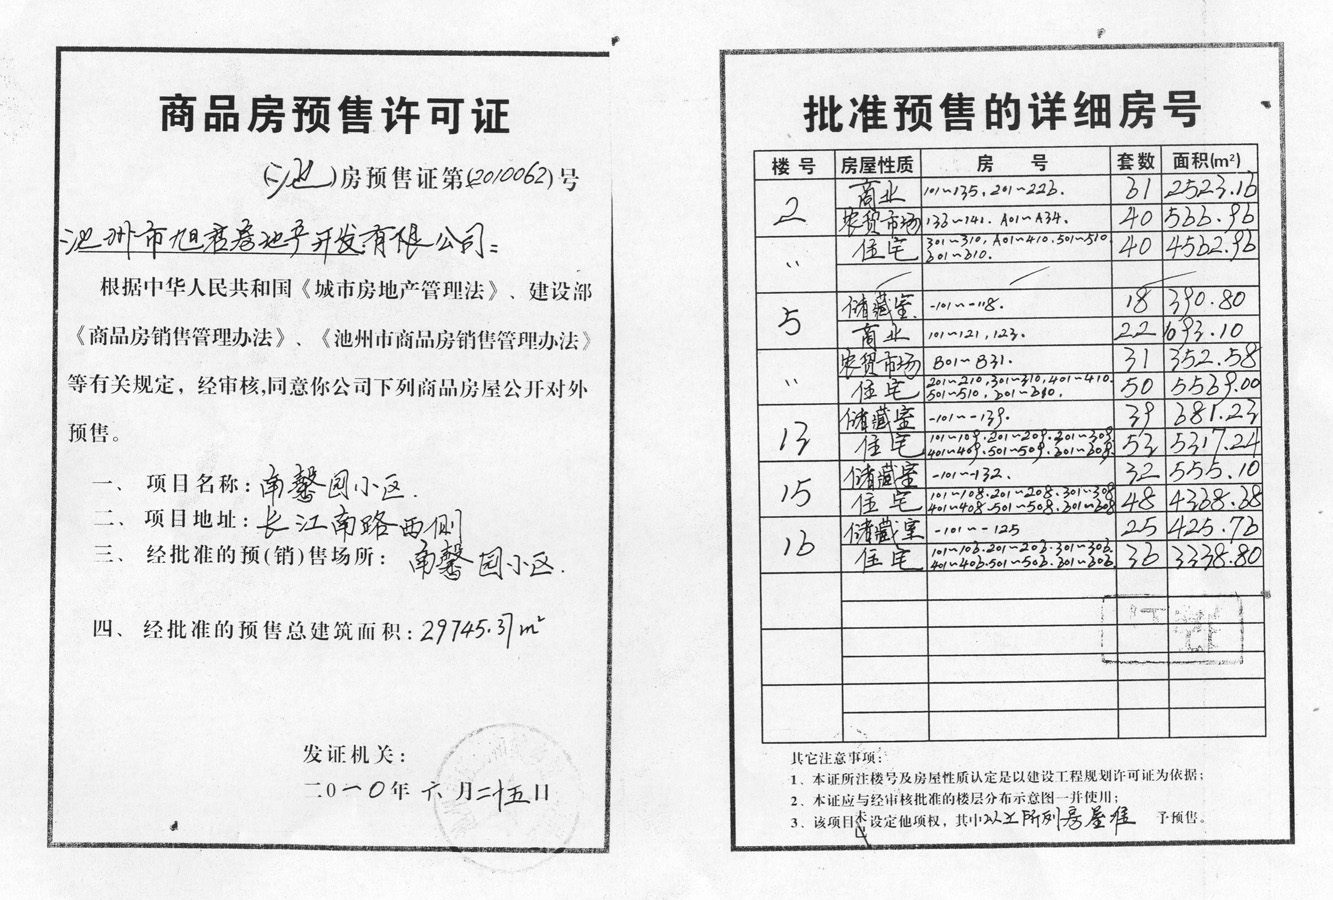 商品房预售许可证
(池)房预售证第(2010062)号
池州市旭君房地产开发有限公司:
根据中华人民共和国《城市房地产管理法》、建设部
《商品房销售管理办法》、《池州市商品房销售管理办法》
等有关规定，经审核,同意你公司下列商品房屋公开对外
预售。
一、项目名称:南馨园小区.
二、项目地址:长江南路西侧
三、经批准的预(销)售场所:南馨园小区.
四、经批准的预售总建筑面积:29745.37m²
发证机关:
二0一0年六月二十五日
批准预售的详细房号
楼号 房屋性质 房号 套数 面积(m²)
2 商业 101~135,201~226. 61 2523.16
农贸市场 136~141. A01~A34. 40 566.96
〃 住宅 301~310, A01~410.501~510 601~610. 40 4562.96
5 储藏室 -101~-118. 18 390.80
商业 101~121,123. 22 693.10
〃 农贸市场 B01~B31. 31 352.58
住宅 201~210,301~310,401~410. 501~510,601~610. 50 5539.00
13 储藏室 -101~-139. 39 681.23
住宅 101~109.201~209.301~309 401~409.501~509.601~609. 53 5317.24
15 储藏室 -101~-132. 32 555.10
住宅 101~108.201~208.301~308 401~408.501~508.601~608 48 4368.38
16 储藏室 -101~-125 25 425.76
住宅 101~106.201~206.301~306. 401~406.501~506.601~606 36 3338.80
其它注意事项:
1、本证所注楼号及房屋性质认定是以建设工程规划许可证为依据;
2、本证应与经审核批准的楼层分布示意图一并使用;
3、该项目未设定他项权，其中以上所列房屋准予预售。